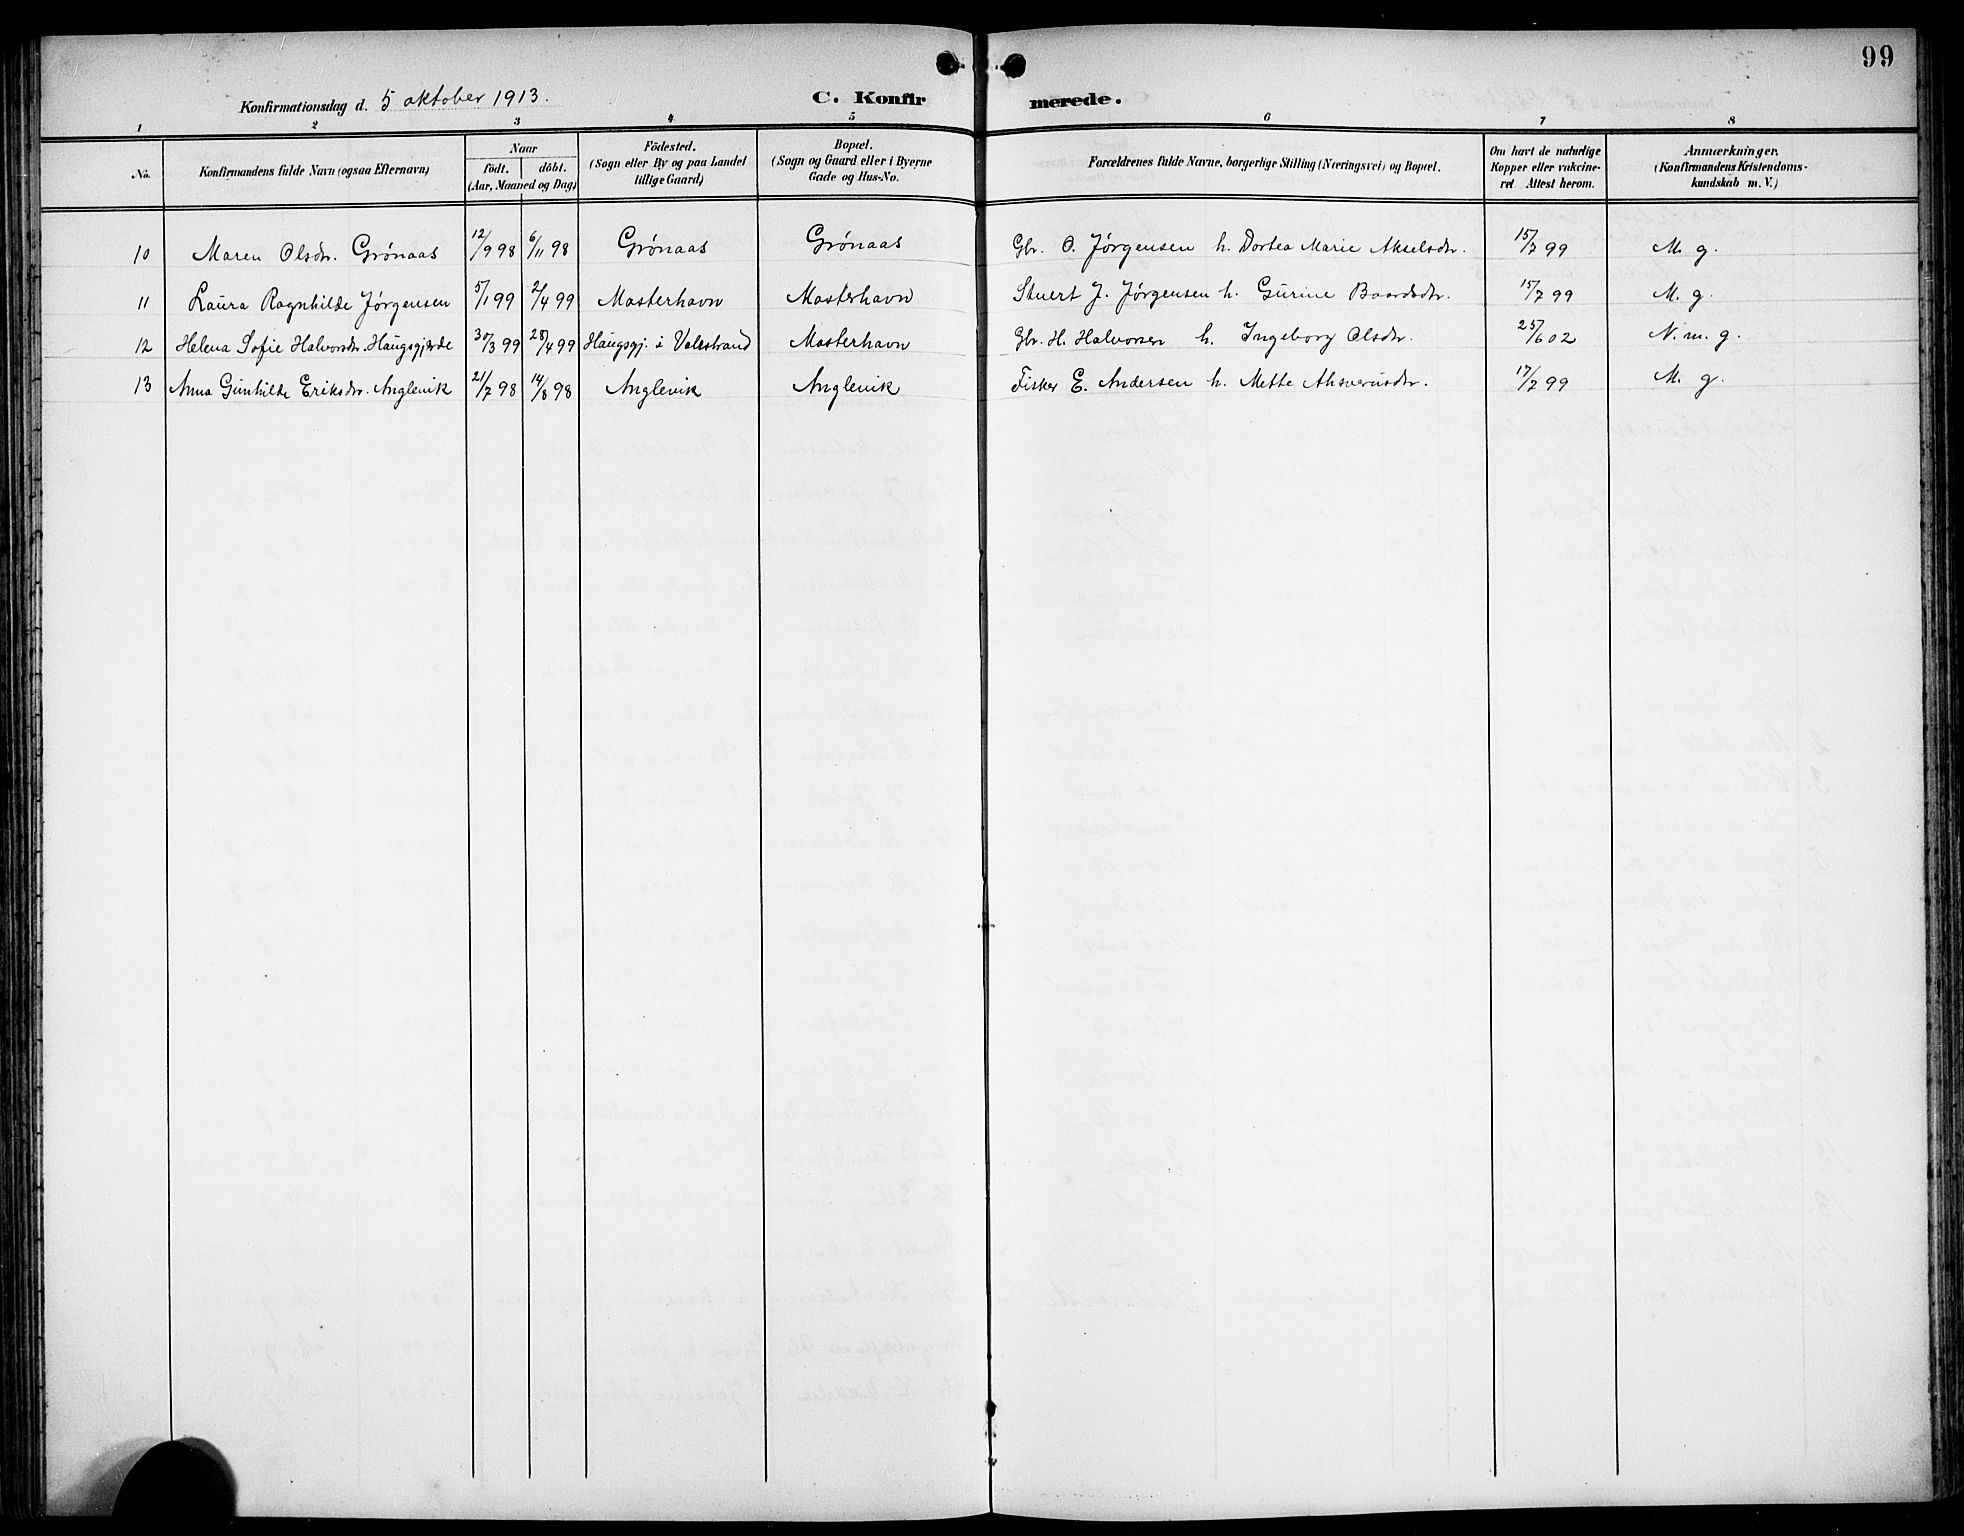 99
Konfirmationsdag d. 5 oktober 1913.
C. Konfirmerede.
1 2 3 4 5 6 7 8
No.
Konfirmandens fulde Navn (ogsaa Efternavn)
Naar
födt. döbt.
(Aar, Maaned og Dag)
Födested.
(Sogn eller By og paa Landet
tillige Gaard)
Bopæl.
(Sogn og Gaard eller i Byerne
Gade og Hus-No.
Forældrenes fulde Navne, borgerlige Stilling (Næringsvei) og Bopæl.
Om havt de naturlige
Kopper eller vakcine-
ret Attest herom.
Anmærkninger.
(Konfirmandens Kristendoms-
kundskab m. V.)
10 Maren Olsdr. Grønaas 12/9 98 6/11 98 Grønaas Grønaas Gbr. O. Jørgensen h. Dortea Marie Akselsdr. 15/7 99 M. g.
11 Laura Ragnhilde Jørgensen 5/1 99 2/4 99 Mosterhavn Mosterhavn Stuert J. Jørgensen h. Gurine Baardsdr. 15/7 99 M. g.
12 Helena Sofie Halvorsdr. Haugsgjerde 30/3 99 28/4 99 Haugsgj. i Valestrand Mosterhavn Gbr. H. Halvorsen h. Ingeborg Olsdr. 25/6 02 N. m. g.
13 Anna Gunhilde Eriksdr. Anglevik 21/7 98 14/8 98 Anglevik Anglevik Fisker E. Andersen h. Mette Ahsverusdr. 17/7 99 M. g.